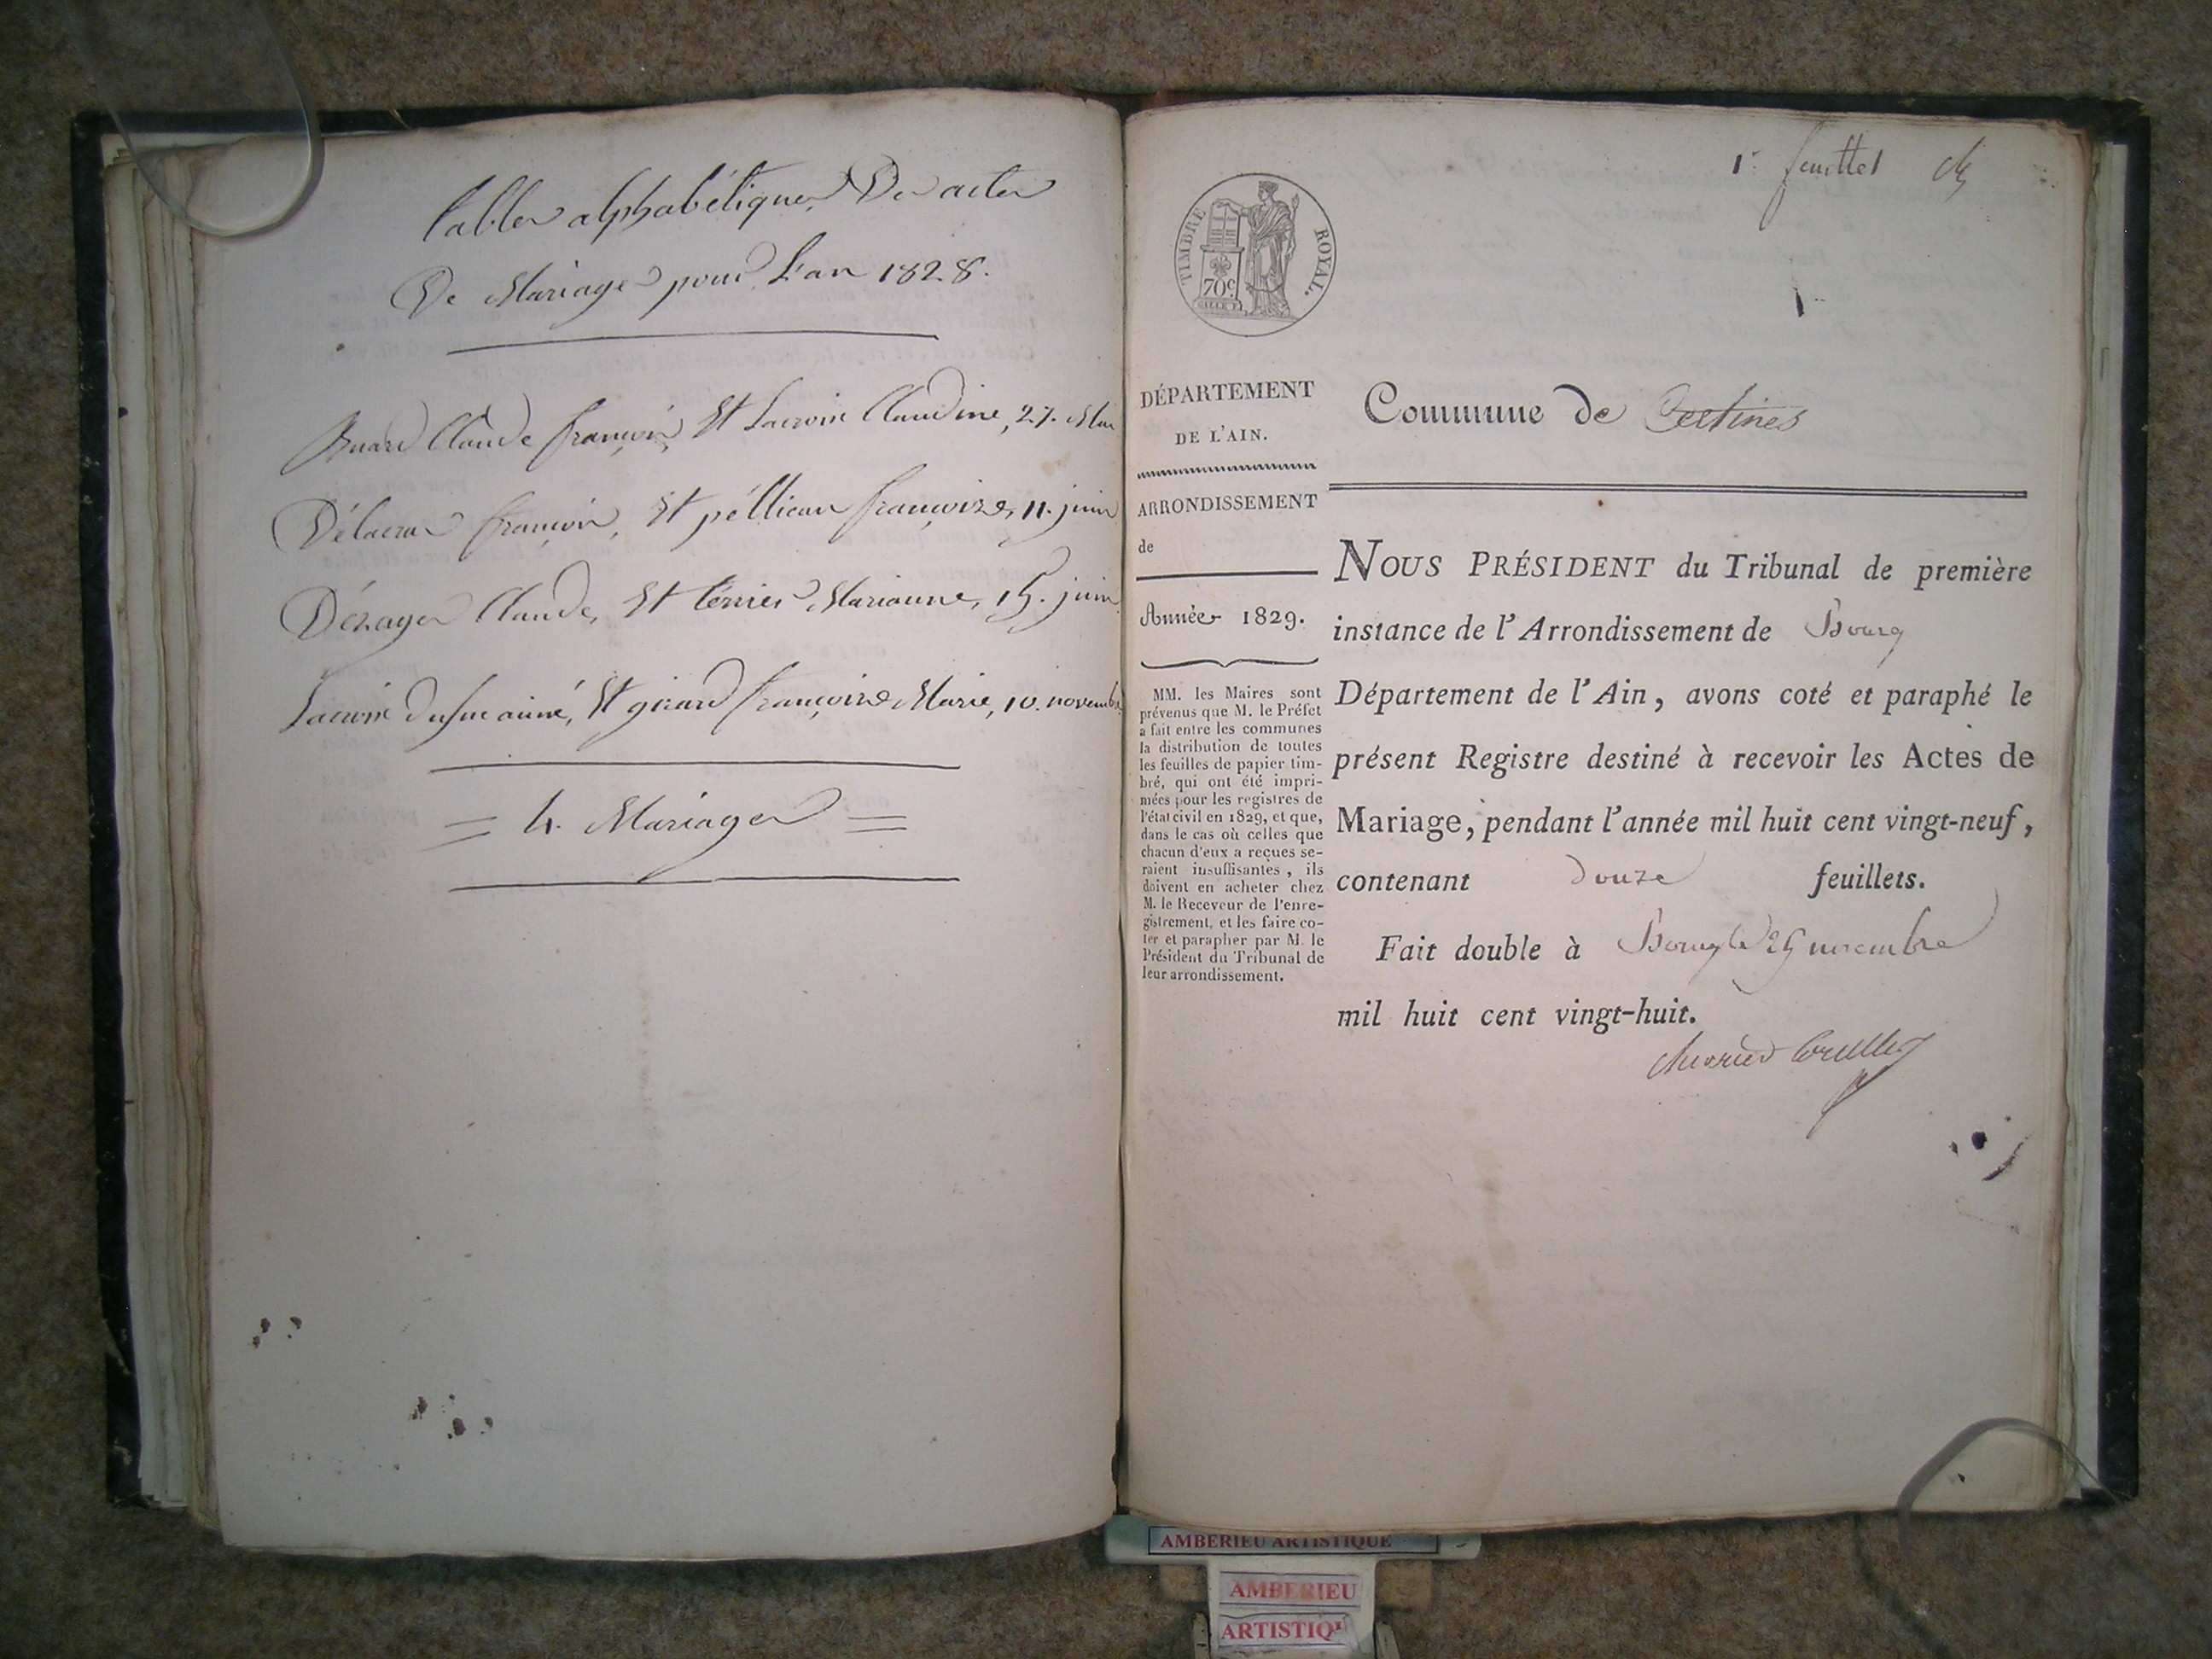 Tables alphabétiques Des actes
De Mariage pour L'an 1828.
Buard Claude françois, Et Lacroix Claudine, 27. Mai
Délacras françois, Et péllican françoise, 11. juin
Dézayes Claude, Et terrier Marianne, 15. juin
Lacroix ainé, Et girard françoise Marie, 10. novembre
= 4. Mariages =
1er feuillet
TIMBRE ROYAL.
70c
DÉPARTEMENT
DE L'AIN.
ARRONDISSEMENT
de
Année 1829.
MM. les Maires sont
prévenus que M. le Préfet
a fait entre les communes
la distribution de toutes
les feuilles de papier tim-
bré, qui ont été impri-
mées pour les registres de
l'état civil en 1829, et que,
dans le cas où celles que
chacun d'eux a reçues se-
raient insuffisantes, ils
doivent en acheter chez
M. le Receveur de l'enre-
gistrement, et les faire co-
ter et parapher par M. le
Président du Tribunal de
leur arrondissement.
Commune de Certines
NOUS PRÉSIDENT du Tribunal de première
instance de l'Arrondissement de Bourg
Département de l'Ain, avons coté et paraphé le
présent Registre destiné à recevoir les Actes de
Mariage, pendant l'année mil huit cent vingt-neuf,
contenant douze feuillets.
Fait double à Bourg le 25 novembre
mil huit cent vingt-huit.
AMBERIEU ARTISTIQUE
AMBERIEU
ARTISTIQU